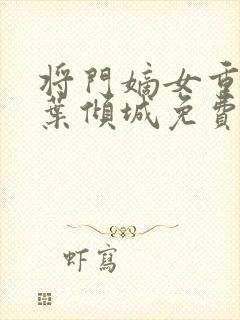 将門嫡女重
葉傾城免費
虾寫